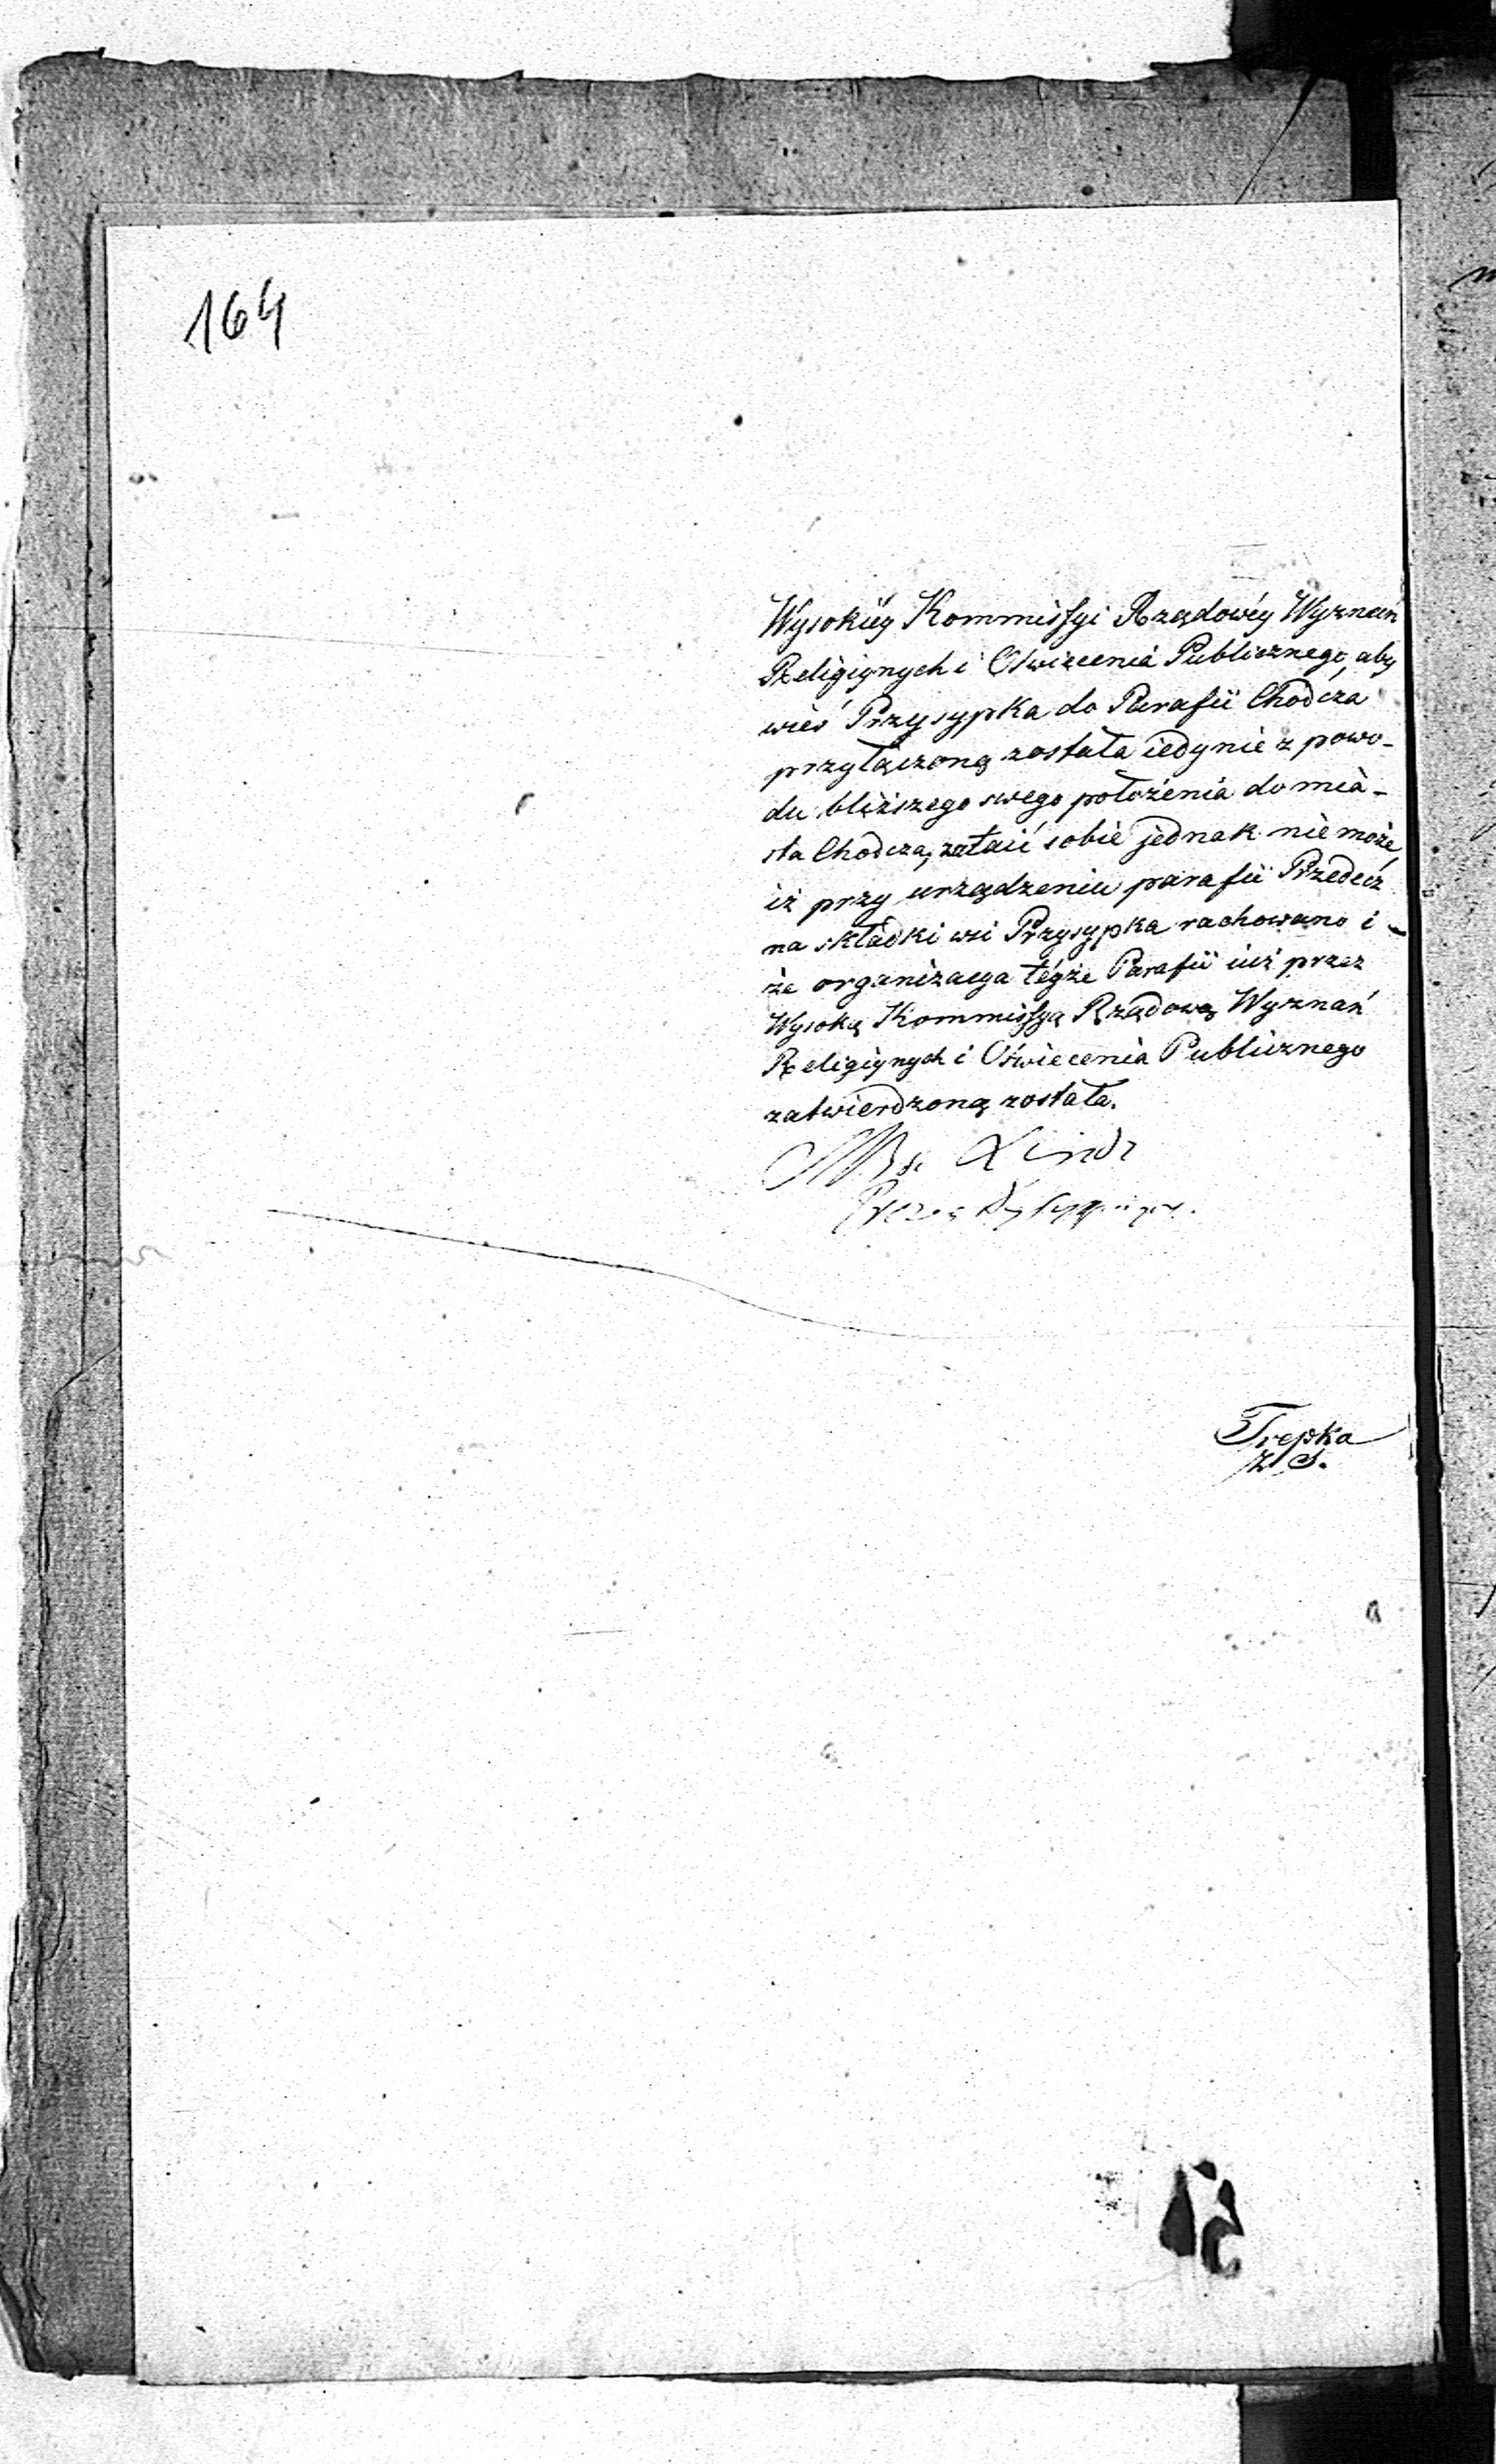 164
Wysokiéy Kommissyi Rządowéy Wyznań
Religiynych i Oświecenia Publicznego, aby
wieś Przysypka do Parafii Chodcza
przyłączoną została iedynie z powo-
du bliższego swego położenia do mia-
sta Chodcza, zataić sobie jednak nie może,
iż przy urządzeniu parafii Przedecz
na składki wsi Przysypka rachowano i -
że organizacya téyże Parafii iuż przez
Wysoką Kommissyą Rządową Wyznań
Religiynych i Oświecenia Publicznego
zatwierdzoną została.
Linde
Prezes
Trepka
Z S.